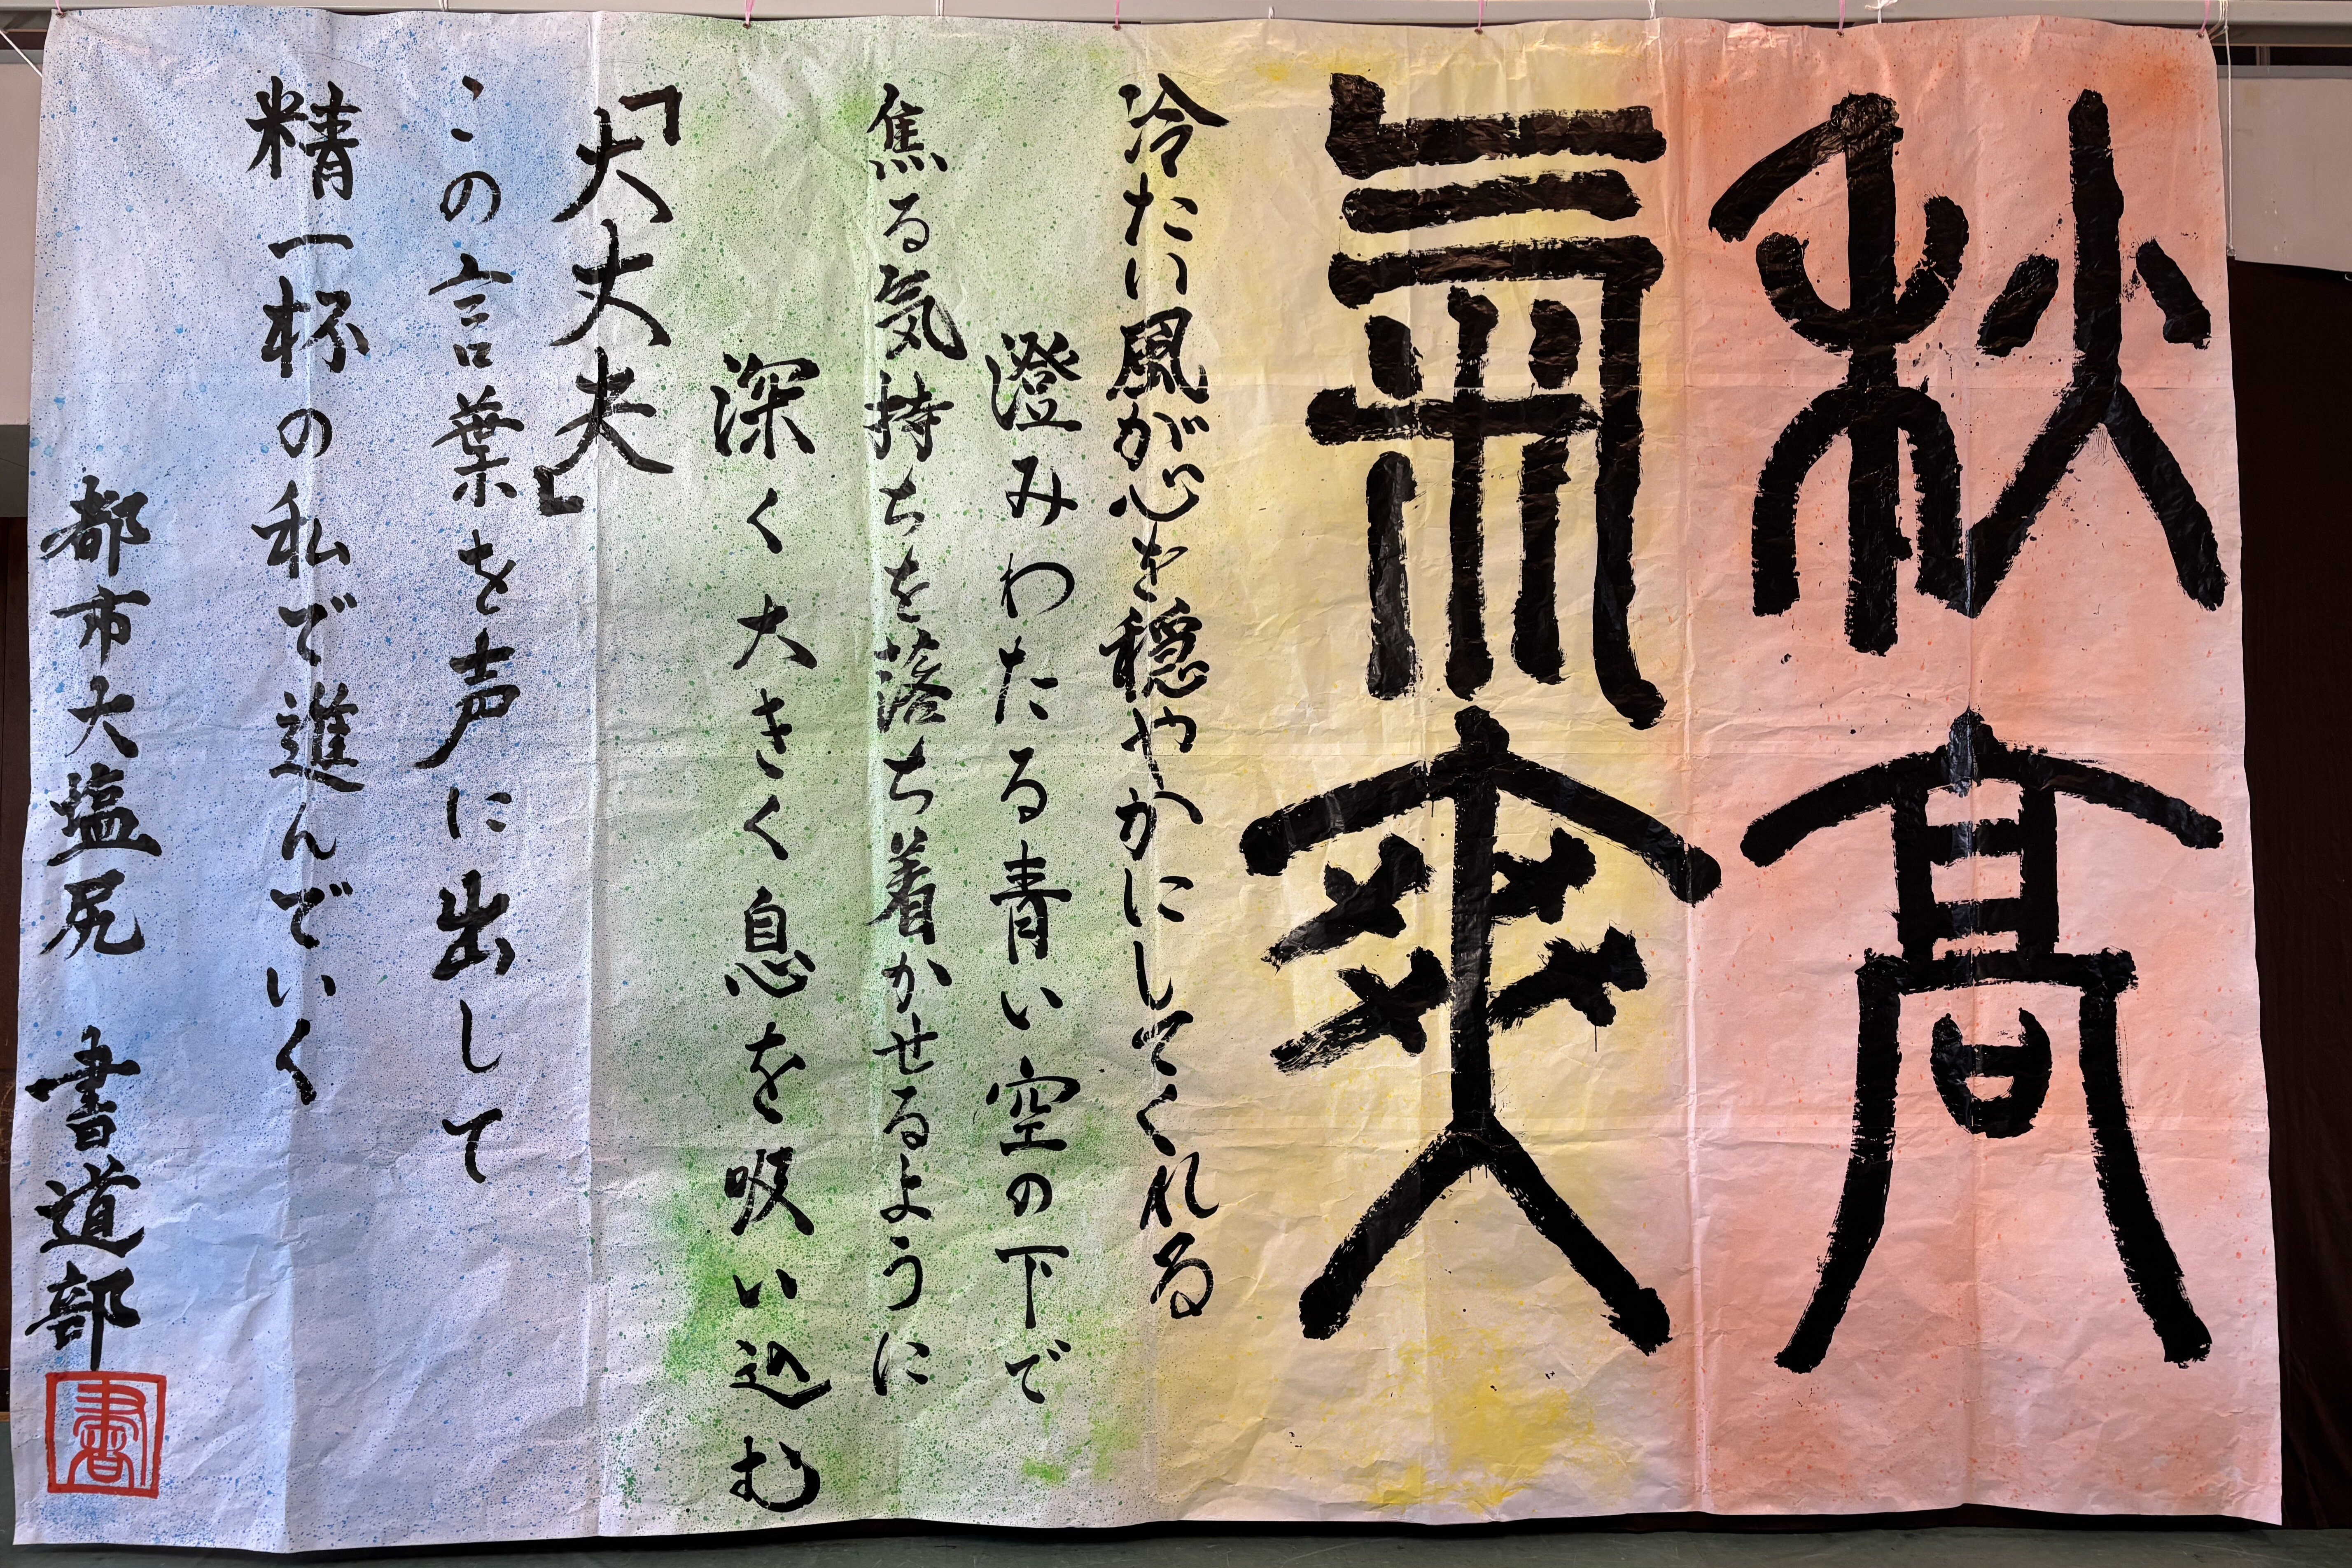 秋高
氣爽
冷たい風が心を穏やかにしてくれる
澄みわたる青い空の下で
焦る気持ちを落ち着かせるように
深く大きく息を吸い込む
「大丈夫」
この言葉を声に出して
精一杯の私で進んでいく
都市大塩尻 書道部
書